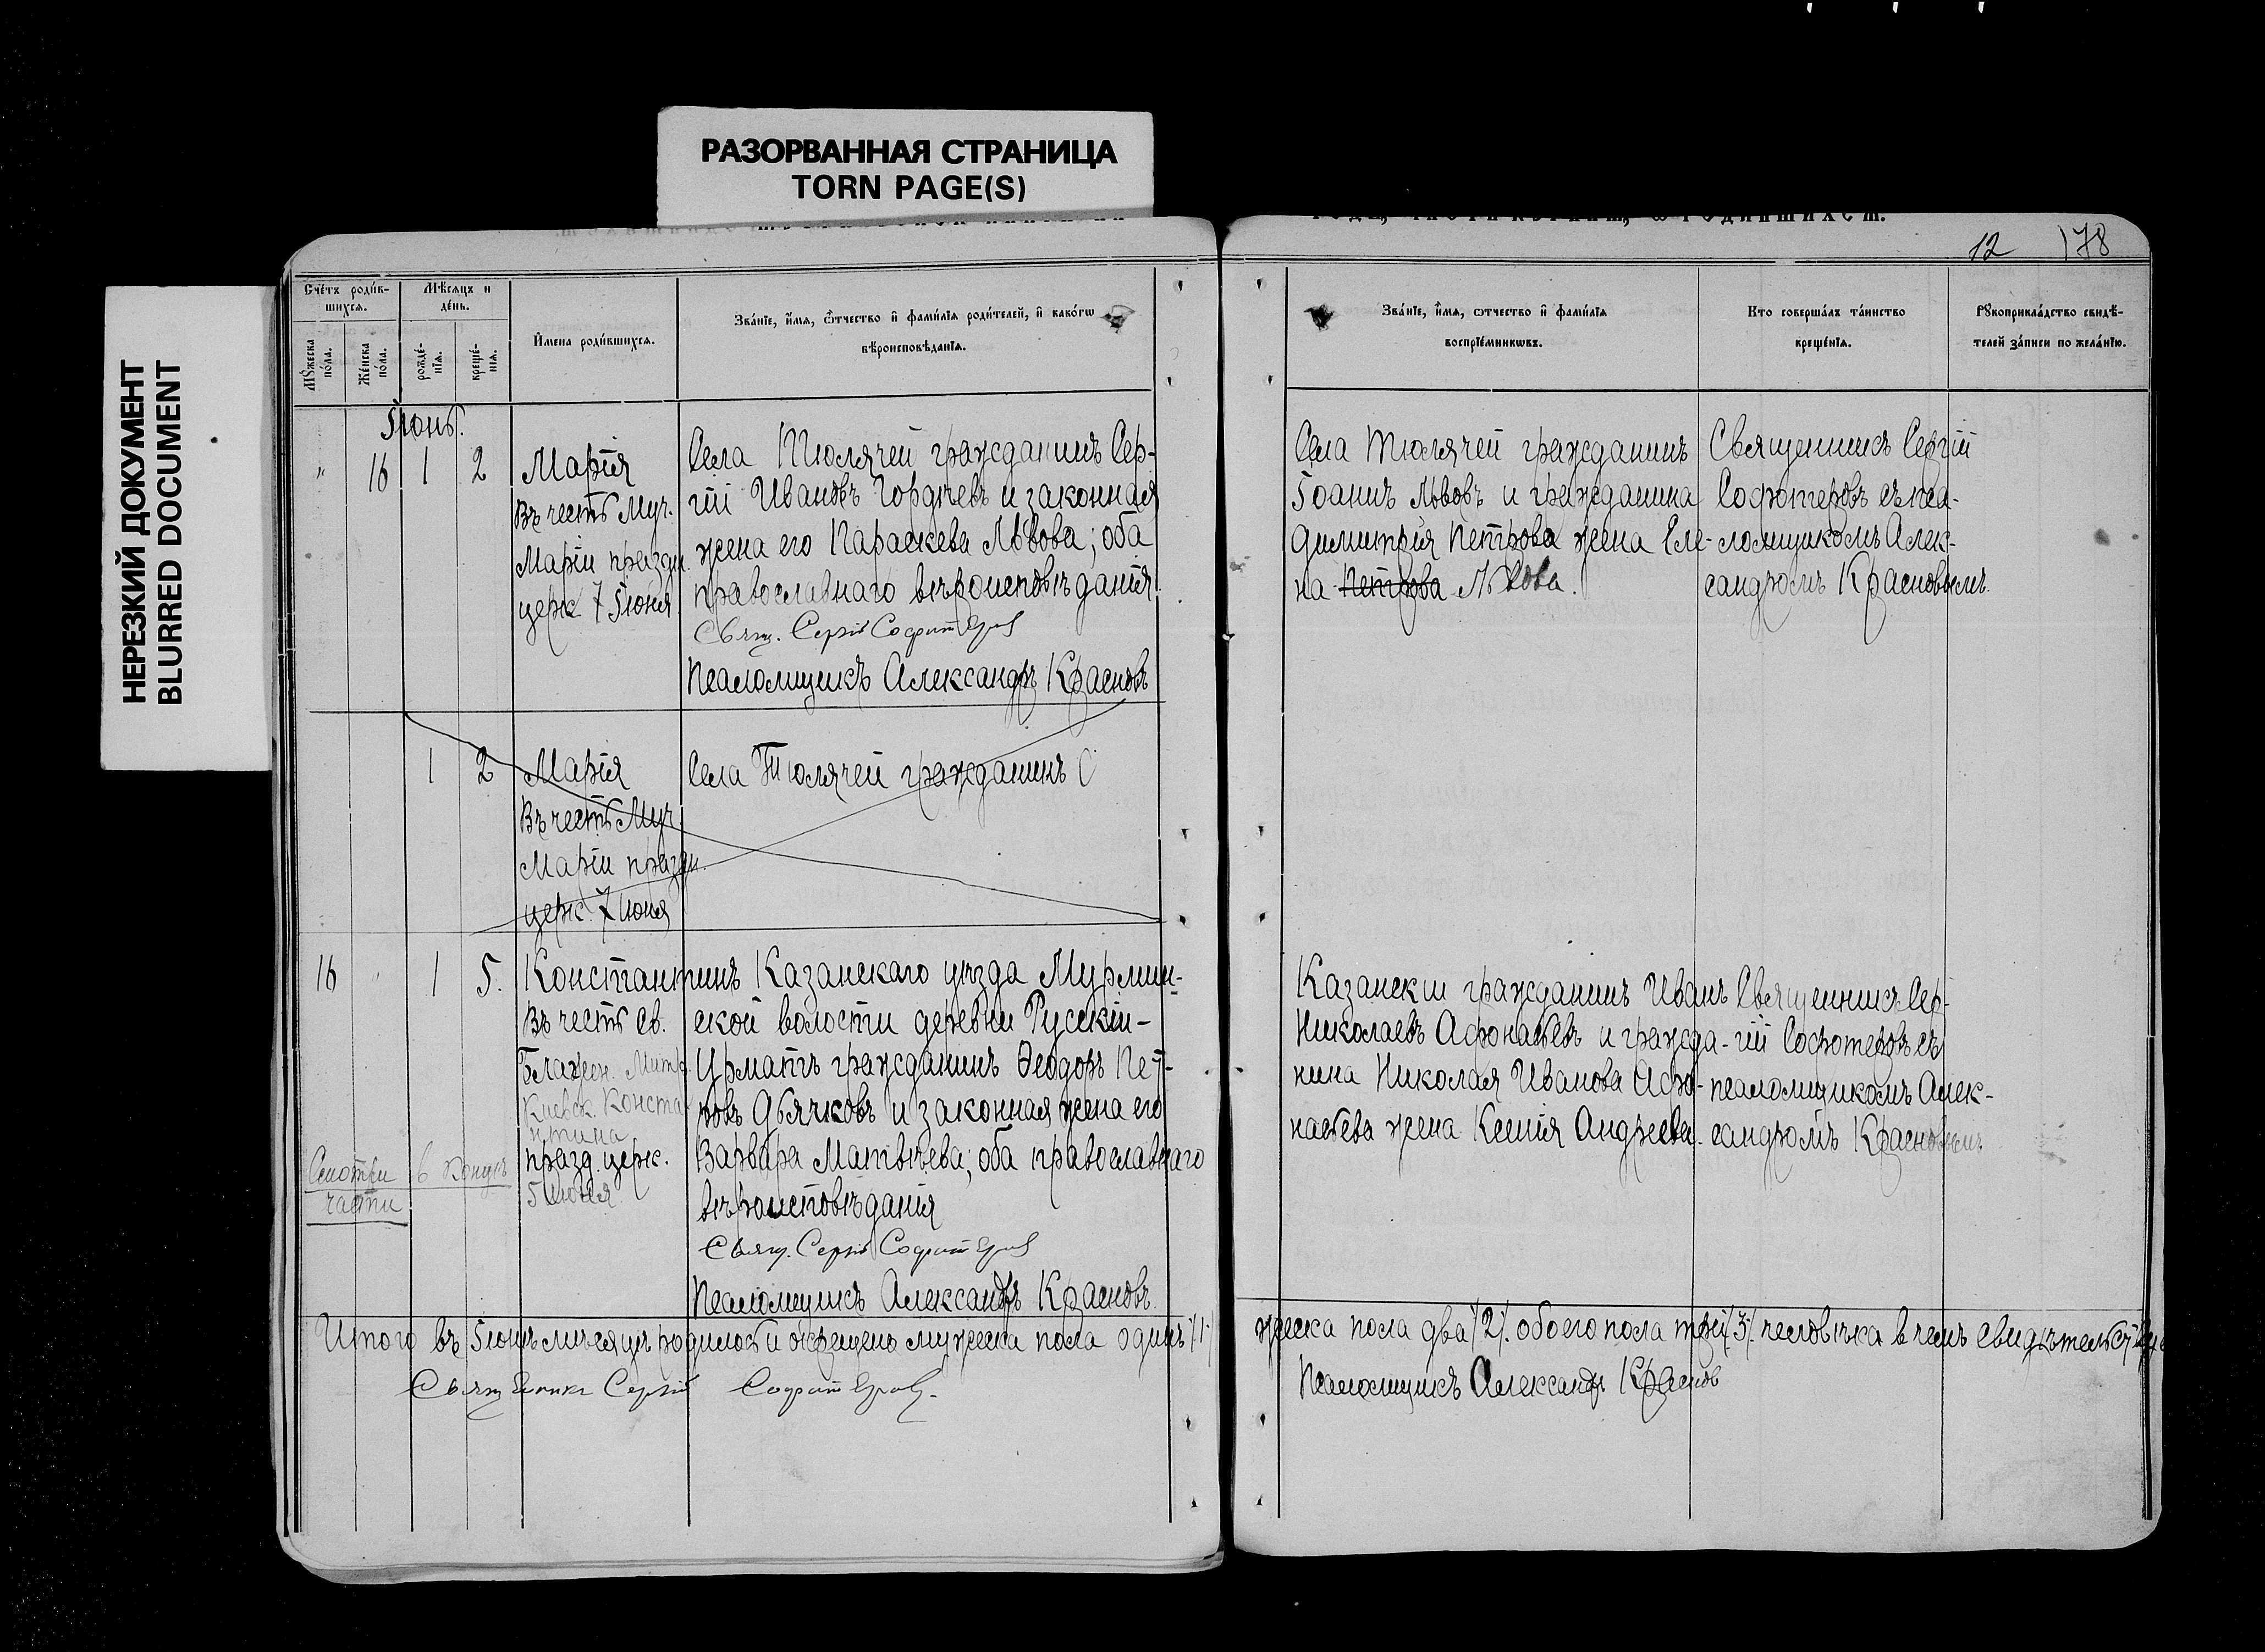 РАЗОРВАННАЯ СТРАНИЦА
TORN PAGE(S)
НЕРЕЗКИЙ ДОКУМЕНТ
BLURRED DOCUMENT
12 178
Счётъ роди́в-
шихся.
Мѣсяцъ и
де́нь.
Мꙋ́жеска
по́ла.
Же́нска
по́ла.
рожде́-
нїѧ.
креще́-
нїѧ.
И҆мена роди́вшихсѧ.
Зва́нїе, и҆́мѧ, ѻ҆́тчество и҆ фами́лїѧ роди́телей, и҆ како́гѡ
вѣроисповѣ́данїѧ.
Зва́нїе, и҆́мѧ, ѻтчество и҆ фами́лїѧ
воспрїе́мникѡвъ.
Кто соверша́лъ та́инство
креще́нїѧ.
Рꙋкоприкла́дство свидѣ́-
телей за́писи по жела́нїю.
Іюнь.
" 16 1 2
Марія
Въ честь Муч.
Маріи праздн.
церк 7 Іюня
Села Тюлячей гражданинъ Сер-
гій Ивановъ Гордѣевъ и законная
жена его Параскева Львова; оба
православнаго вѣроисповѣданія.
Свящ. Сергій Софотеров
Псаломщикъ Александръ Красновъ
Села Тюлячей гражданинъ
Іоаннъ Львовъ и гражданина
Димитрія Петрова жена Еле-
на Петрова Львова.
Священникъ Сергій
Софотеровъ съ пса-
ломщикомъ Алек-
сандромъ Красновымъ.
1 2
Марія
Въ честь Муч
Маріи праздн.
церк. 7 июня
Села Тюлячей гражданинъ С
16 1 5.
Константинъ
Въ честь св.
Блажен. Митр.
Киевск. Конста
нтина
празд. церк.
5 Июня
Казанскаго уѣзда Мурмин-
ской волости деревни Русскій-
Урматъ гражданинъ Ѳеодоръ Пет-
ровъ Дьячковъ и законная жена его
Варвара Матвѣева; оба православнаго
вѣроисповѣданія
Свящ. Сергій Софотеров
Псаломщикъ Александръ Красновъ.
Смотри в конце
части
Казанскій гражданинъ Иванъ
Николаевъ Афонасьевъ и гражда-
нина Николая Иванова Афо-
насьева жена Ксенія Андреева.
Священникъ Сер-
гій Софотеровъ съ
псаломщикомъ Алек-
сандромъ Красновымъ
Итого въ Іюнѣ мѣсяцѣ родилось и окрещено мужеска пола одинъ /1/
женска пола два /2/. обоего пола три /3/. человѣка в чемъ
Священникъ Сергій Софотеров.
Псаломщикъ Александръ Краснов